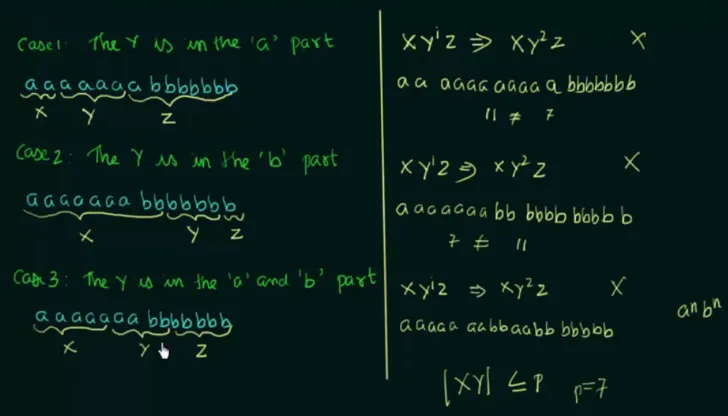 Case 1: The Y is in the 'a' part
aaaaaaabbbbbbb
X Y Z
Case 2: The Y is in the 'b' part
aaaaaaabbbbbbb
X Y Z
Case 3: The Y is in the 'a' and 'b' part
aaaaaaabbbbbbb
X Y Z
XYⁱZ ⇒ XY²Z X
aa aaaa aaaa a bbbbbbb
11 ≠ 7
XYⁱZ ⇒ XY²Z X
aaaaaaabb bbbb bbbb b
7 ≠ 11
XYⁱZ ⇒ XY²Z X
aⁿbⁿ
aaaaa aabbaabb bbbbb
|XY| ≤ P p=7